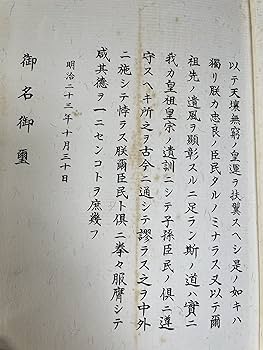 以テ天壤無窮ノ皇運ヲ扶翼スヘシ是ノ如キハ
獨リ朕カ忠良ノ臣民タルノミナラス又以テ爾
祖先ノ遺風ヲ顯彰スルニ足ラン斯ノ道ハ實ニ
我カ皇祖皇宗ノ遺訓ニシテ子孫臣民ノ俱ニ遵
守スヘキ所之ヲ古今ニ通シテ謬ラス之ヲ中外
ニ施シテ悖ラス朕爾臣民ト俱ニ拳々服膺シテ
咸其德ヲ一ニセンコトヲ庶幾フ
明治二十三年十月三十日
御名御璽